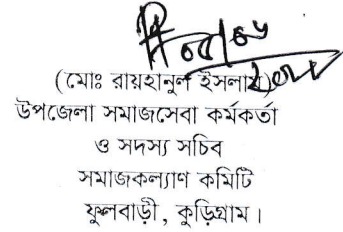 (মোঃ রায়হানুল ইসলাম)
উপজেলা সমাজসেবা কর্মকর্তা
ও সদস্য সচিব
সমাজকল্যাণ কমিটি
ফুলবাড়ী, কুড়িগ্রাম।